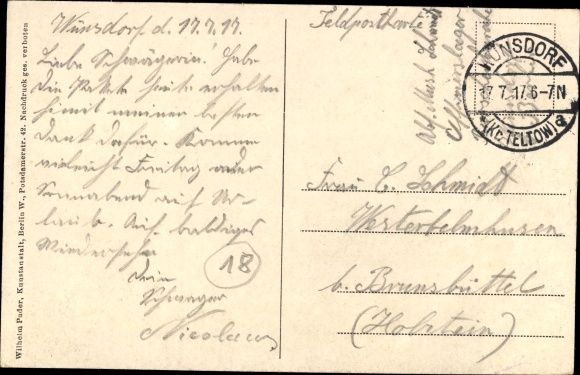 Wünsdorf d. 17.7.17.
Liebe Schwägerin! Habe
die Pakete heute erhalten
hiermit meinen besten
Dank dafür. Komme
vielleicht Freitag oder
Sonnabend auf Ur-
laub. Auf baldiges
Wiedersehn
Dein
Schwager
Nicolaus
18
Feldpostkarte
WÜNSDORF
17.7.17.6-7N
(Kr. TELTOW) a
Frau C. Schmidt
Westerbelmhusen
b. Brunsbüttel
(Holstein)
Wilhelm Puder, Kunstanstalt, Berlin W., Potsdamerstr. 42. Nachdruck ges. verboten